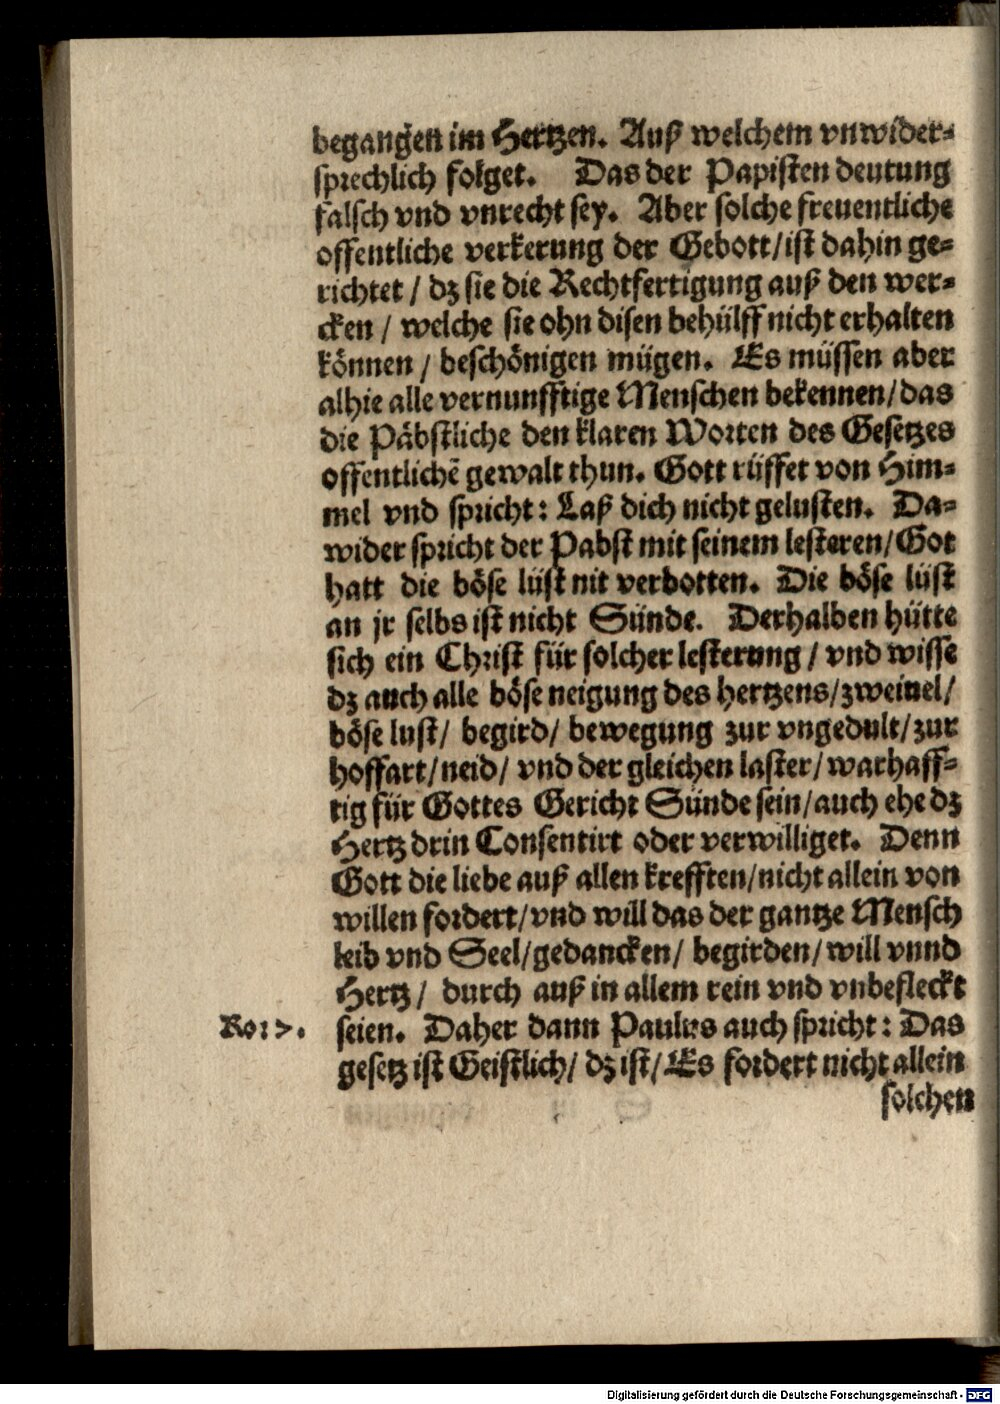 begangen im Hertzen. Auß welchem vnwider-
sprechlich folget. Das der Papisten deutung
falsch vnd vnrecht sey. Aber solche freuentliche
offentliche verkerung der Gebott/ist dahin ge-
richtet / dz sie die Rechtfertigung auß den wer-
cken / welche sie ohn disen behülff nicht erhalten
können / beschönigen mügen. Es müssen aber
alhie alle vernunfftige Menschen bekennen/das
die Päbstliche den klaren Worten des Gesetzes
offentlichē gewalt thun. Gott rüffet von Him-
mel vnd spricht: Laß dich nicht gelusten. Da-
wider spricht der Pabst mit seinem lesteren/Got
hatt die böse lüst nit verbotten. Die böse lüst
an jr selbs ist nicht Sünde. Derhalben hütte
sich ein Christ für solcher lesterung / vnd wisse
dz auch alle böse neigung des hertzens/zweiuel/
böse lust/ begird/ bewegung zur vngedult/zur
hoffart/neid/ vnd der gleichen laster/warhaff-
tig für Gottes Gericht Sünde sein/auch ehe dz
Hertz drin Consentirt oder verwilliget. Denn
Gott die liebe auß allen krefften/nicht allein von
willen fordert/vnd will das der gantze Mensch
leib vnd Seel/gedancken/ begirden/will vnnd
Hertz / durch auß in allem rein vnd vnbefleckt
Ro: 7. seien. Daher dann Paulus auch spricht: Das
gesetz ist Geistlich/ dz ist/Es fordert nicht allein
solchen
Digitalisierung gefördert durch die Deutsche Forschungsgemeinschaft - DFG